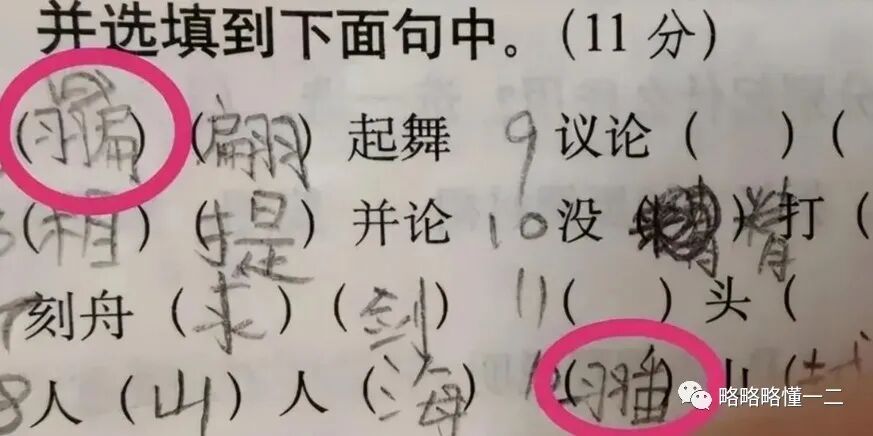 并选填到下面句中。(11分)
( ) (翩) 起舞 9 议论 ( ) (
(相) (提) 并论 10 没 ( ) 精 打 (
7 刻舟 (求) (剑) 11 ( ) 头 (
8 人 (山) 人 (海) ( ) 山 (
略略略懂一二